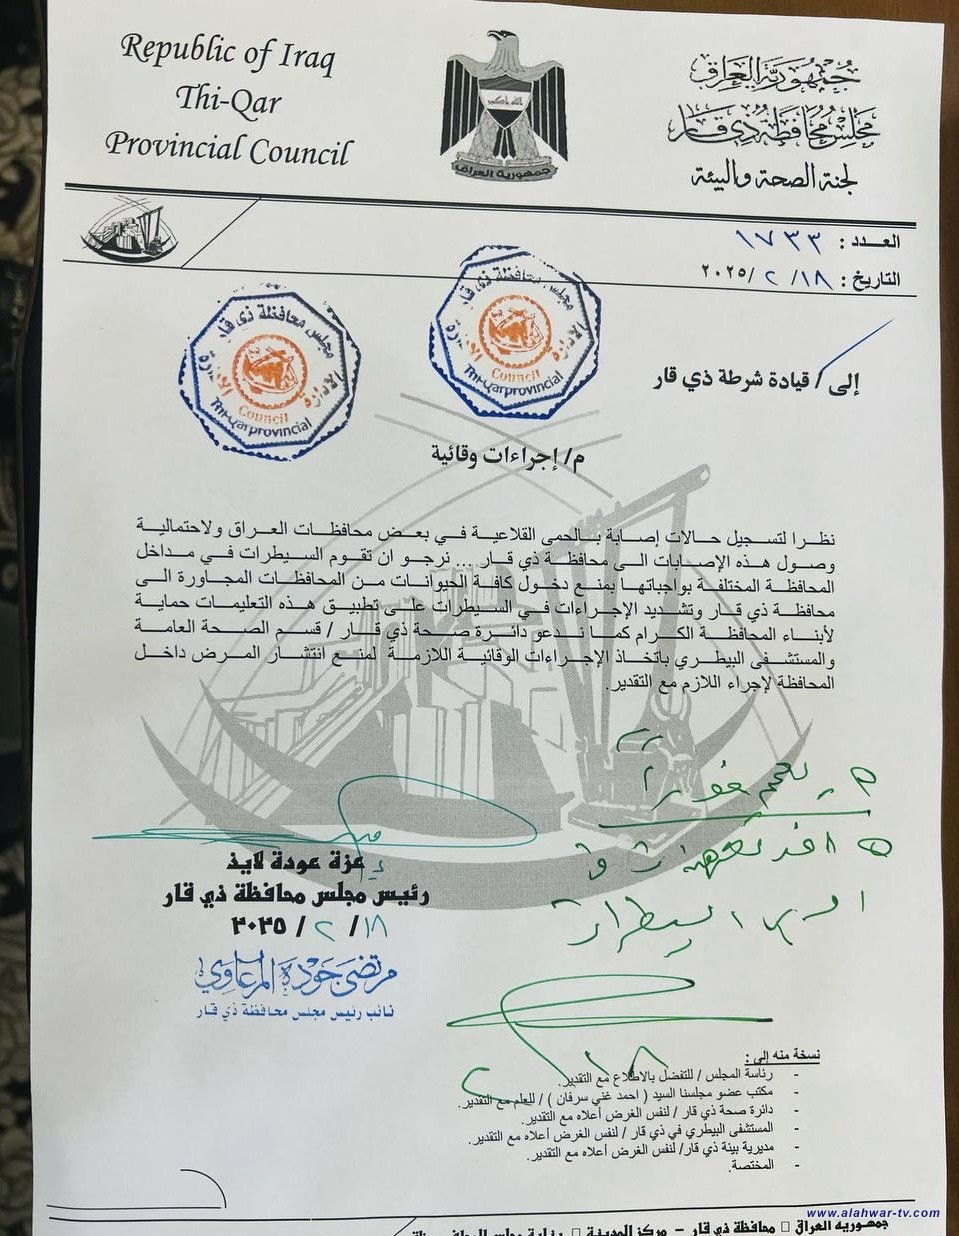 Republic of Iraq
Thi-Qar
Provincial Council
جمهورية العراق
جمهورية العراق
مجلس محافظة ذي قار
لجنة الصحة والبيئة
العـــدد : ١٧٣٣
التاريخ : ١٨/ ٢ /٢٠٢٥
مجلس محافظة ذي قار
Council
Thi-Qar provincial
مجلس محافظة ذي قار
Council
Thi-Qar provincial
إلى / قيادة شرطة ذي قار
م/ إجراءات وقائية
نظرا لتسجيل حالات إصابة بالحمى القلاعية في بعض محافظات العراق ولاحتمالية
وصول هذه الإصابات الى محافظة ذي قار ... نرجو ان تقوم السيطرات في مداخل
المحافظة المختلفة بواجباتها بمنع دخول كافة الحيوانات من المحافظات المجاورة الى
محافظة ذي قار وتشديد الإجراءات في السيطرات على تطبيق هذه التعليمات حماية
لأبناء المحافظة الكرام كما ندعو دائرة صحة ذي قار / قسم الصحة العامة
والمستشفى البيطري باتخاذ الإجراءات الوقائية اللازمة لمنع انتشار المرض داخل
المحافظة لإجراء اللازم مع التقدير.
فورا
السيطرات
د. عزة عودة لايذ
رئيس مجلس محافظة ذي قار
١٨/ ٢ / ٢٠٢٥
مرتضى جودة المرعاوي
نائب رئيس مجلس محافظة ذي قار
١٨
٢
نسخة منه إلى :
- رئاسة المجلس / للتفضل بالاطلاع مع التقدير.
- مكتب عضو مجلسنا السيد ( احمد غني سرفان ) / للعلم مع التقدير.
- دائرة صحة ذي قار / لنفس الغرض أعلاه مع التقدير.
- المستشفى البيطري في ذي قار / لنفس الغرض أعلاه مع التقدير.
- مديرية بيئة ذي قار/ لنفس الغرض أعلاه مع التقدير.
- المختصة.
www.alahwar-tv.com
جمهورية العراق □ محافظة ذي قار – مركز المدينة □